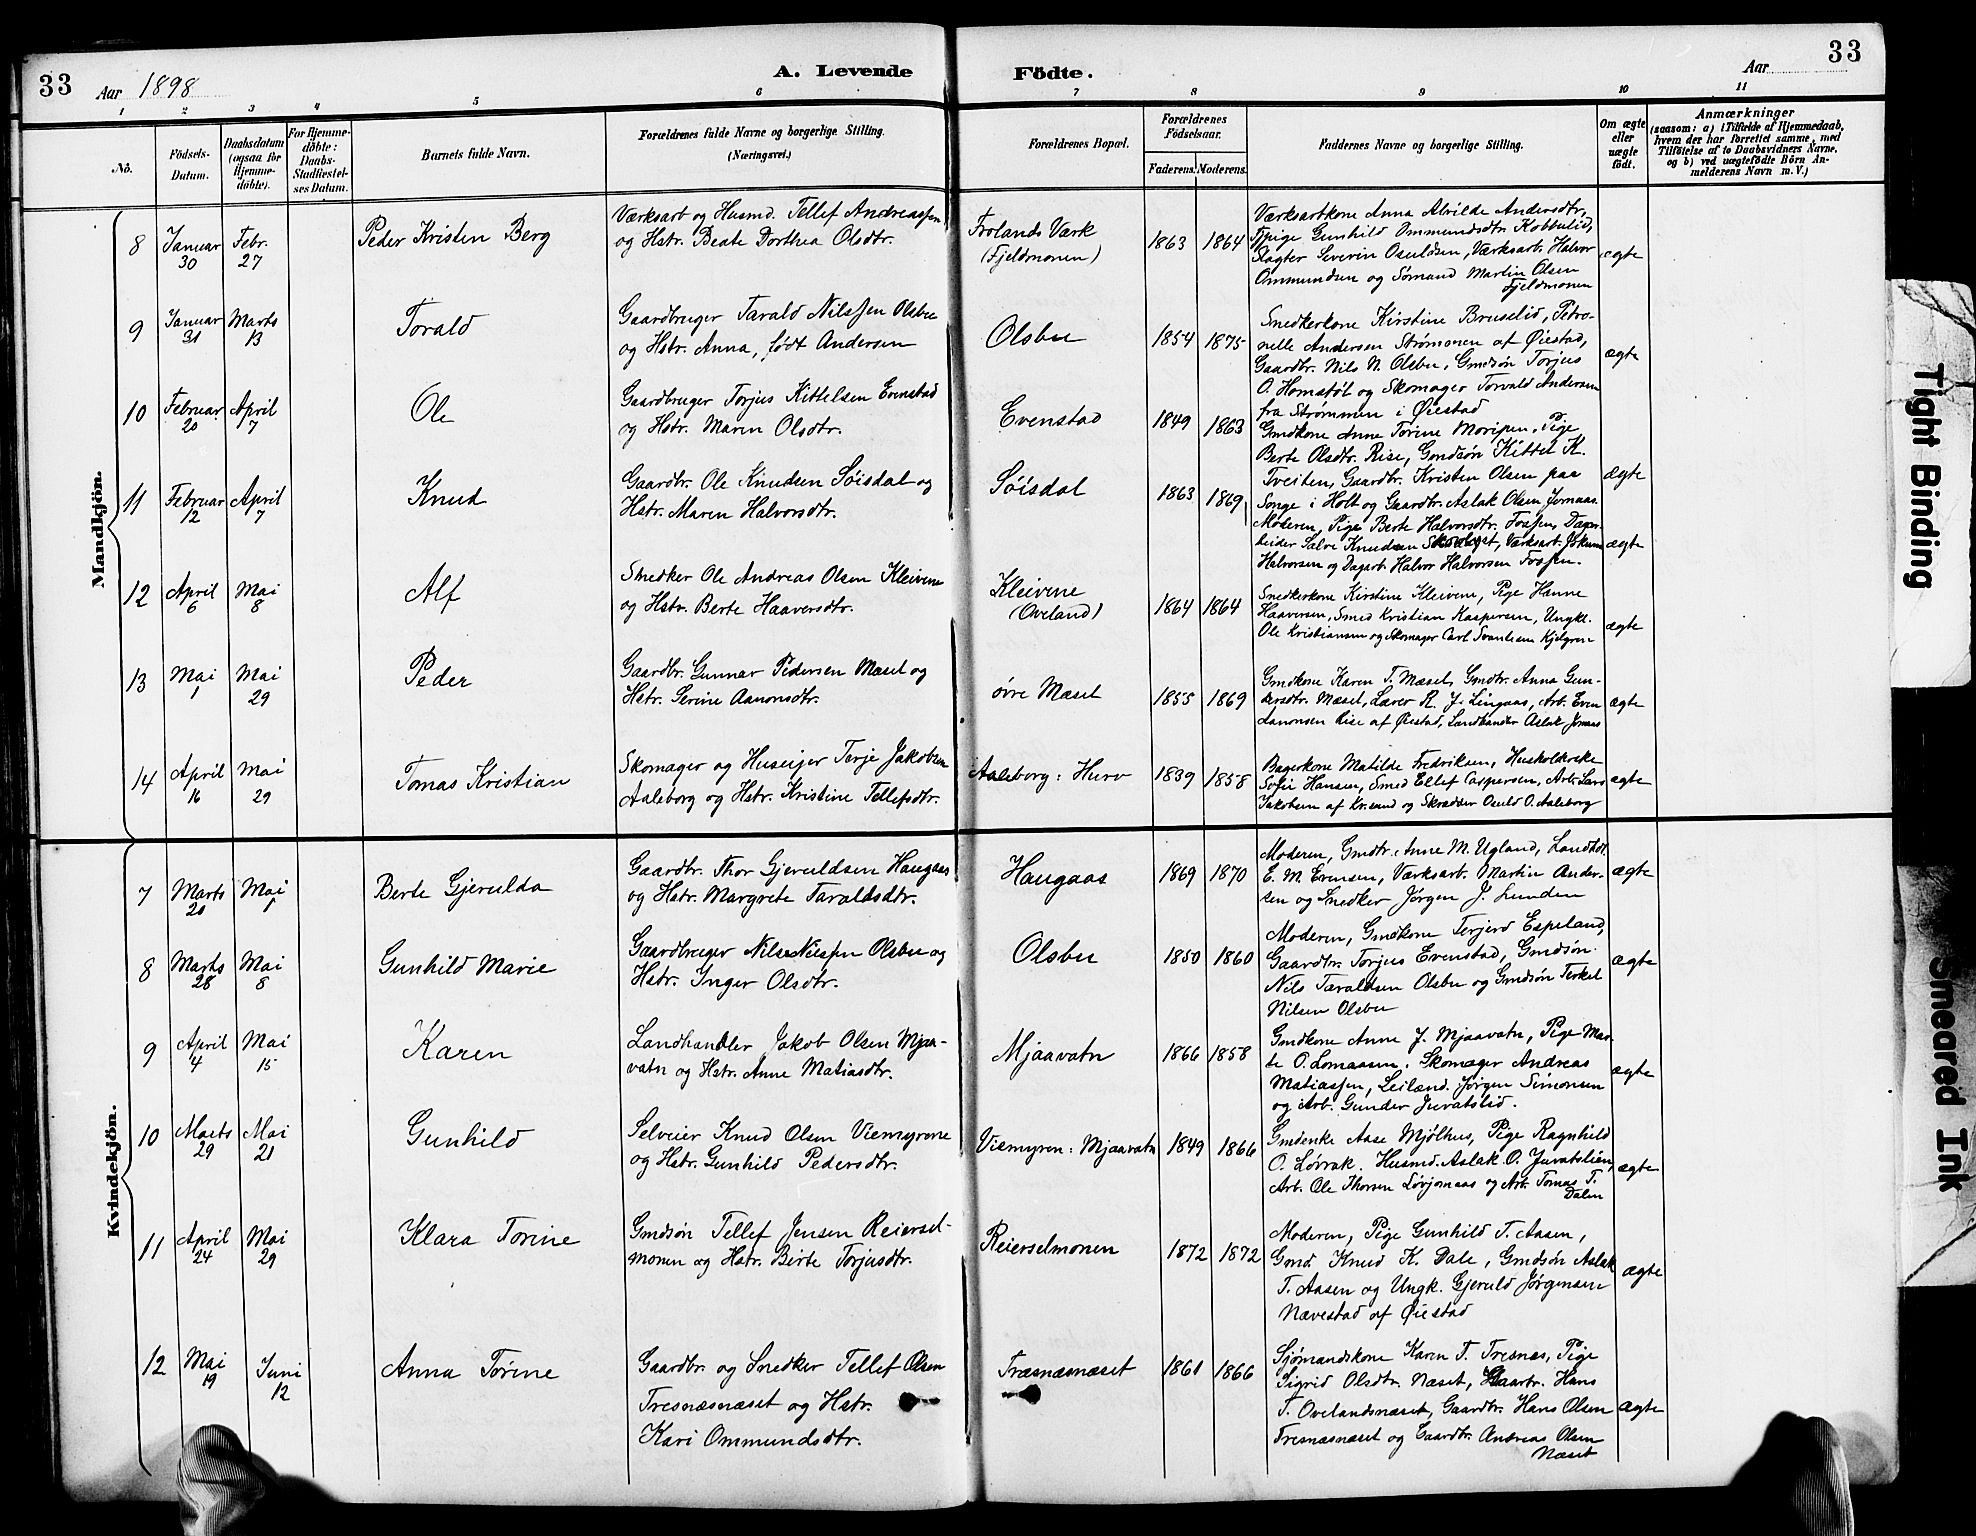 33 Aar 1898 A. Levende Födte. Aar 33
1 2 3 4 5 6 7 8 9 10 11
No.
Födsels-Datum.
Daabsdatum (ogsaa for Hjemme-döbte).
For Hjemme-döbte: Daabs-Stadfæstel-ses Datum.
Barnets fulde Navn.
Forældrenes fulde Navne og borgerlige Stilling. (Næringsvei.)
Forældrenes Bopæl.
Forældrenes Födselsaar. Faderens. Moderens.
Faddernes Navne og borgerlige Stilling.
Om ægte eller uægte födt.
Anmærkninger
(saasom: a) i Tilfælde af Hjemmedaab,
hvem der har forrettet samme, med
Tilföielse af to Daabsvidners Navne,
og b) ved uægtefödte Börn An-
melderens Navn m. V.)
Mandkjön.
8 Januar 30 Febr. 27 Peder Kristen Berg
Værksarb og Husmd. Tellef Andreassen
og Hstr. Beate Dorthea Olsdtr.
Frolands Værk
(Fjeldmonen)
1863 1864
Værksarbkone Anna Alvilde Andersdtr,
Tjpige Gunhild Ommundsdtr. Kobbulid,
Slagter Severin Osuldsen, Værksarb. Halvor
Ommundsen og Sømand Martin Olsen
Fjeldmonen
ægte
9 Januar 31 Marts 13 Torald
Gaardbruger Tarald Nilssen Olsbu
og Hstr. Anna, født Andersen
Olsbu
1854 1875
Snedkerkone Kirstine Brusslid, Petro-
nelle Andersen Strømmen af Øiestad,
Gaardbr. Nils N. Olsbu, Gmdsøn Torjus
O. Homstøl og Skomager Torvald Andersen
fra Strømmen i Øiestad
ægte
10 Februar 20 April 7 Ole
Gaardbruger Torjus Kittelsen Evenstad
og Hstr. Maren Olsdtr.
Evenstad
1849 1863
Gmdkone Anne Torine Moripen, Pige
Berte Olsdtr. Rise, Gmdsøn Kittel K.
Tveiten, Gaardbr. Kristen Olsen paa
Songe i Holt og Gaardbr. Aslak Olsen Jomaas
ægte
11 Februar 12 April 7 Knud
Gaardbr. Ole Knudsen Søisdal og
Hstr. Maren Halvorsdtr.
Søisdal
1863 1869
Moderen, Pige Berte Halvorsdtr. Fossen, Dagar-
beider Salve Knudsen, Værksarb. Jokum
Halvorsen og Dagarb. Halvor Halvorsen Fossen.
ægte
12 April 6 Mai 8 Alf
Snedker Ole Andreas Olsen Kleivene
og Hstr. Berte Haaversdtr.
Kleivene
(Oveland)
1864 1864
Snedkerkone Kirstine Kleiven, Pige Hanne
Haaversen, Smed Kristian Kaspersen, Ungkl.
Ole Kristiansen og Skomager Carl Svanlsen Kjelgren
ægte
13 Mai 1 Mai 29 Peder
Gaardbr. Gunnar Pedersen Mæset og
Hstr. Serine Aanonsdtr.
øvre Mæset
1855 1869
Gmdkone Karen T. Mæset, Gmdtr. Anna Gun-
dersdtr. Mæset, Lærer R. J. Lingaas, Arb. Even
Aanonsen Rise af Øiestad, Landhandler Aslak Jomaas
ægte
14 April 16 Mai 29 Tomas Kristian
Skomager og Huseijer Terje Jakobsen
Aaleborg og Hstr. Kristine Tellefsdtr.
Aaleborg: Hurv
1839 1858
Bagerkone Matilde Fredriksen, Husholderske
Sofie Hansen, Smed Ellef Caspersen, Arb. Lars
Jakobsen af Kr.sand og Skrædder Osuld O. Aaleborg
ægte
Kvindekjön.
7 Marts 20 Mai 1 Berte Gjerulda
Gaardbr. Thor Gjeruldsen Haugaas
og Hstr. Margrete Taraldsdtr.
Haugaas
1869 1870
Moderen, Gmdtr. Anne M. Ugland, Landhdl.
E. M. Evensen, Værksarb. Martin Ander-
sen og Snedker Jørgen J. Lunden
ægte
8 Marts 28 Mai 8 Gunhild Marie
Gaardbruger Nils Nilssen Olsbu og
Hstr. Inger Olsdtr.
Olsbu
1850 1860
Moderen, Gmdkone Terjerd Espeland,
Gaardbr. Torjus Evenstad, Gmdsøn
Nils Taraldsen Olsbu og Gmdsøn Terkel
Nilsen Olsbu
ægte
9 April 4 Mai 15 Karen
Landhandler Jakob Olsen Mjaa-
vatn og Hstr. Anne Matiasdtr.
Mjaavatn
1866 1858
Gmdkone Anne J. Mjaavatn, Pige Mar-
te O. Lomassen. Skomager Andreas
Matiassen, Leilænd. Jørgen Simonsen
og Arb. Gunder Juvatslid.
ægte
10 Marts 29 Mai 21 Gunhild
Selveier Knud Olsen Viemyrene
og Hstr. Gunhild Pedersdtr.
Viemyren: Mjaavatn
1849 1866
Gmdenke Aase Mjølhus, Pige Ragnhild
O. Løvrak. Husmd. Aslak O. Juvatslien,
Arb. Ole Thorsen Løvjomaas og Arb. Tomas T.
Dalen
ægte
11 April 24 Mai 29 Klara Torine
Gmdsøn Tellef Jensen Reiersel-
monen og Hstr. Birte Torjusdtr.
Reierselmonen
1872 1872
Moderen, Pige Gunhild T. Aasen,
Gmd. Knud K. Dale, Gmdsøn Aslak
T. Aasen og Ungk. Gjeruld Jørgensen
Nævestad af Øiestad
ægte
12 Mai 19 Juni 12 Anna Torine
Gaardbr. og Snedker Tellef Olsen
Tresnæsnæset og Hstr.
Kari Ommundsdtr.
Træsnæsnæset
1861 1866
Sjømandskone Karen T. Tresnæs, Pige
Sigrid Olsdtr. Næset, Gaardbr. Hans
T. Ovelandsnæset, Gaardbr. Hans Olsen
Tresnæsnæset og Gaardbr. Andreas Olsen
Næset
ægte
Tight Binding
Smeared Ink